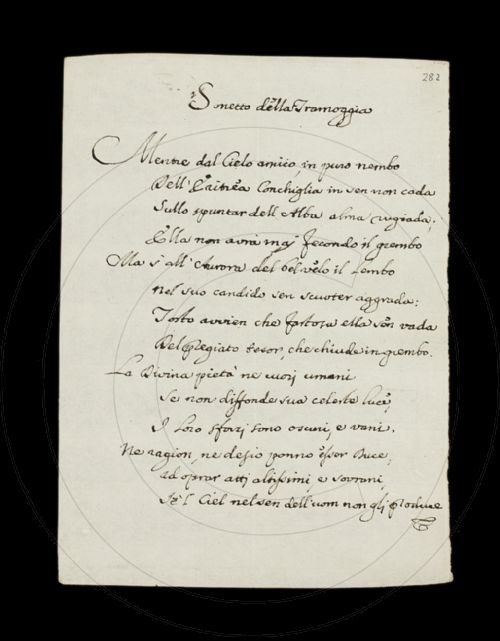 282
Sonetto della Tramoggia
Mentre dal Cielo amico, in puro nembo
Dell' Conchiglia in sen non cada
Sullo spuntar dell' Alba alma rugiada;
Ella non avrà mai fecondo il grembo
Ma s'all' Aurora del bel velo il Lembo
nel suo candido sen scuoter aggrada:
Tosto avvien che fastosa ella sen vada
Del pregiato tesor, che chiude in grembo.
La Divina pietà ne cuori umani
Se non diffonde sua celeste luce,
I loro sforzi sono oscuri, e vani.
Ne ragion, ne desio ponno esser Duce,
ad oprar atti altissimi, e sovrani,
Se'l Ciel nel sen dell'uom non gli produce